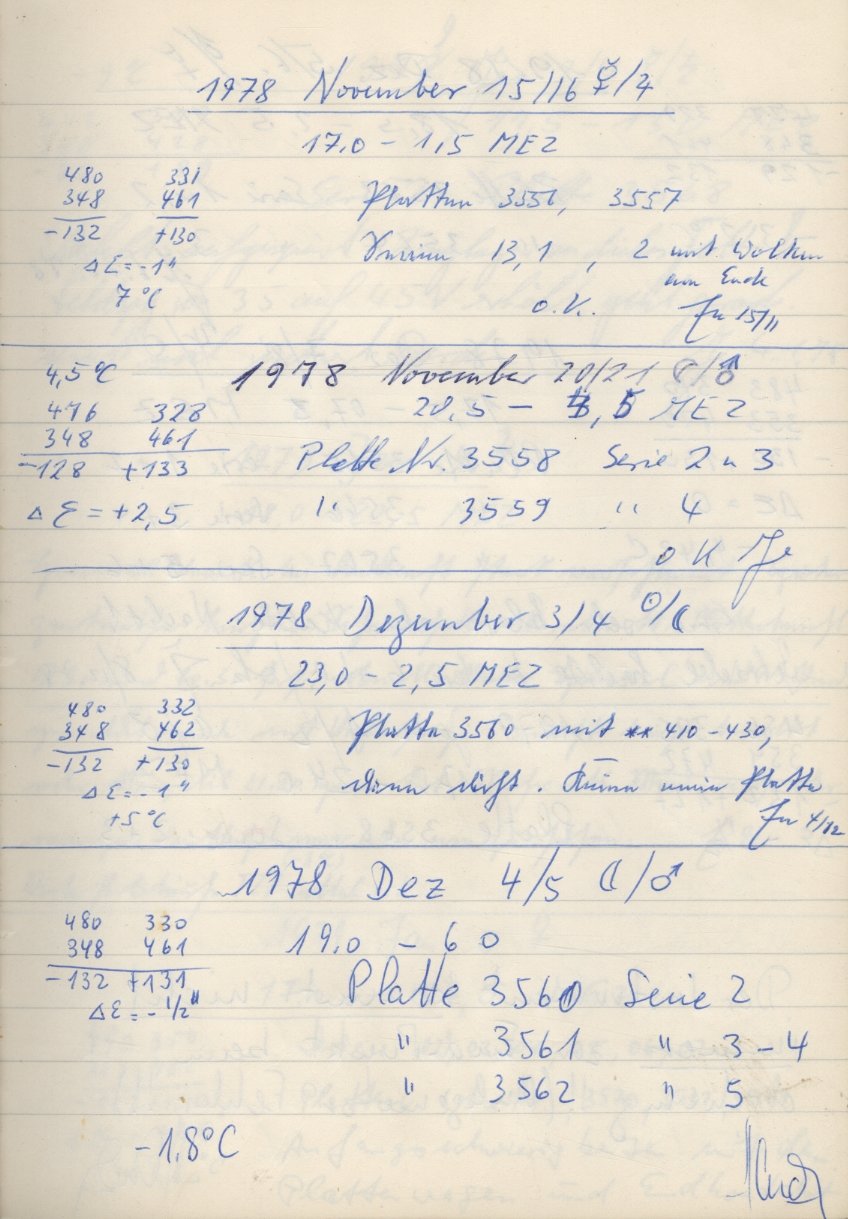 1978 November 15/16 ☿/♃
17,0 - 1,5 MEZ
480 331
348 461
-132 +130
ΔE = -1"
7°C
Platten 3556, 3557
Serien 13,1 , 2 mit Wolken
am Ende
O.K. 15/11
4,5°C
1978 November 20/21 ☾/♂
20,5 - 3,5 MEZ
476 328
348 461
-128 +133
ΔE = +2,5
Platte Nr. 3558 Serie 2 u 3
" 3559 " 4
OK
1978 Dezember 3/4 ☉/☾
23,0 - 2,5 MEZ
480 332
348 462
-132 +130
ΔE = -1"
+5°C
Platte 3560 mit ** 410-430,
dann dicht. Platte
4/12
1978 Dez 4/5 ☾/♂
480 330
348 461
-132 +131
ΔE = -1/2"
19.0 - 6 0
Platte 3560 Serie 2
" 3561 " 3-4
" 3562 " 5
-1,8°C